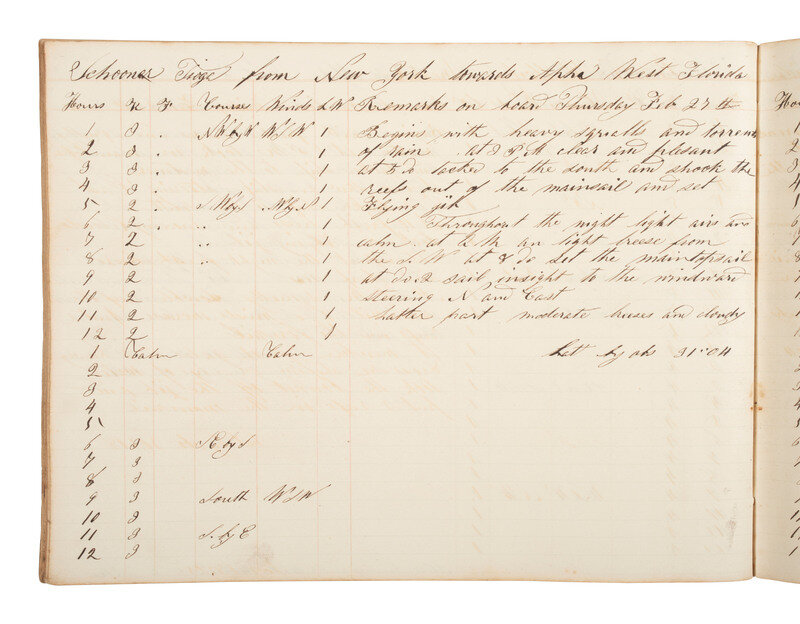 Schooner Tioge from New York towards Apha West Florida
Hours K F Course Winds L W Remarks on board Thursday Feb 27th
1 3 . NWbyN WSW 1 Begins with heavy squalls and torrents
2 3 . 1 of rain at 3 P.M clear and pleasant
3 3 . 1 at 5 do tacked to the south and shook the
4 3 . 1 reefs out of the mainsail and set
5 2 . SWbyS WbyS 1 Flying gib
6 2 . " 1 Throughout the night light airs and
7 2 " 1 calm. at 6 AM an light breese from
8 2 " 1 the S.W at 8 do set the maintopsail
9 2 1 at do 2 sail insight to the windward
10 2 1 steering N and East
11 2 1 Latter part moderate breeses and cloudy
12 2 1
1 Calm Calm Lat by obs 31°04
2
3
4
5
6 3 SE by S
7 3
8 3
9 3 South WSW
10 3
11 3 S. by E
12 3
Hou
1
2
3
4
5
6
7
8
9
10
11
12
1
2
3
4
5
6
7
8
9
10
11
12